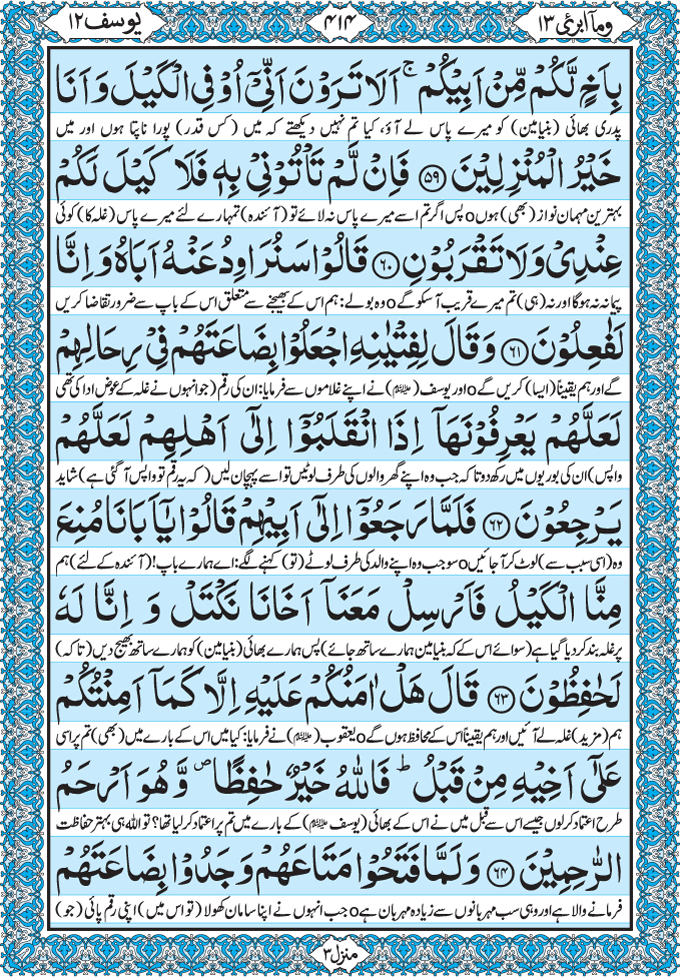 وما ابرئ ۱۳ ۴۱۴ یوسف ۱۲
بِاَخٍ لَّكُمْ مِّنْ اَبِیْكُمْ ۚ اَلَا تَرَوْنَ اَنِّیْۤ اُوْفِی الْكَیْلَ وَ اَنَا
پدری بھائی (بنیامین) کو میرے پاس لے آؤ، کیا تم نہیں دیکھتے کہ میں (کس قدر) پورا ناپتا ہوں اور میں
خَیْرُ الْمُنْزِلِیْنَ ﴿۵۹﴾ فَاِنْ لَّمْ تَاْتُوْنِیْ بِهٖ فَلَا كَیْلَ لَكُمْ
بہترین مہمان نواز (بھی) ہوںo پس اگر تم اسے میرے پاس نہ لائے تو (آئندہ) تمہارے لئے میرے پاس (غلہ کا) کوئی
عِنْدِیْ وَ لَا تَقْرَبُوْنِ ﴿۶۰﴾ قَالُوْا سَنُرَاوِدُ عَنْهُ اَبَاهُ وَ اِنَّا
پیمانہ نہ ہوگا اور نہ (ہی) تم میرے قریب آسکو گےo وہ بولے: ہم اس کے بھیجنے سے متعلق اس کے باپ سے ضرور تقاضا کریں
لَفٰعِلُوْنَ ﴿۶۱﴾ وَ قَالَ لِفِتْیٰنِهِ اجْعَلُوْا بِضَاعَتَهُمْ فِیْ رِحَالِهِمْ
گے اور ہم یقیناً (ایسا) کریں گےo اور یوسف (علیہ السلام) نے اپنے غلاموں سے فرمایا: ان کی رقم (جو انہوں نے غلہ کے عوض ادا کی تھی
لَعَلَّهُمْ یَعْرِفُوْنَهَاۤ اِذَا انْقَلَبُوْۤا اِلٰۤی اَهْلِهِمْ لَعَلَّهُمْ
واپس) ان کی بوریوں میں رکھ دو تاکہ جب وہ اپنے گھر والوں کی طرف لوٹیں تو اسے پہچان لیں (کہ یہ رقم تو واپس آگئی ہے) شاید
یَرْجِعُوْنَ ﴿۶۲﴾ فَلَمَّا رَجَعُوْۤا اِلٰۤی اَبِیْهِمْ قَالُوْا یٰۤاَبَانَا مُنِعَ
وہ (اسی سبب سے) لوٹ کر آجائیںo سو جب وہ اپنے والد کی طرف لوٹے (تو) کہنے لگے: اے ہمارے باپ! (آئندہ کے لئے) ہم
مِنَّا الْكَیْلُ فَاَرْسِلْ مَعَنَاۤ اَخَانَا نَكْتَلْ وَ اِنَّا لَهٗ
پر غلہ بند کر دیا گیا ہے (سوائے اس کے کہ بنیامین ہمارے ساتھ جائے) پس ہمارے بھائی (بنیامین) کو ہمارے ساتھ بھیج دیں (تاکہ)
لَحٰفِظُوْنَ ﴿۶۳﴾ قَالَ هَلْ اٰمَنُكُمْ عَلَیْهِ اِلَّا كَمَاۤ اَمِنْتُكُمْ
ہم (مزید) غلہ لے آئیں اور ہم یقیناً اس کے محافظ ہوں گےo یعقوب (علیہ السلام) نے فرمایا: کیا میں اس کے بارے میں (بھی) تم پر اسی
عَلٰۤی اَخِیْهِ مِنْ قَبْلُ ؕ فَاللّٰهُ خَیْرٌ حٰفِظًا ۪ وَّ هُوَ اَرْحَمُ
طرح اعتماد کر لوں جیسے اس سے قبل میں نے اس کے بھائی (یوسف علیہ السلام) کے بارے میں تم پر اعتماد کر لیا تھا؟ تو اللہ ہی بہتر حفاظت
الرّٰحِمِیْنَ ﴿۶۴﴾ وَ لَمَّا فَتَحُوْا مَتَاعَهُمْ وَجَدُوْا بِضَاعَتَهُمْ
فرمانے والا ہے اور وہی سب مہربانوں سے زیادہ مہربان ہےo جب انہوں نے اپنا سامان کھولا (تو اس میں) اپنی رقم پائی (جو)
منزل ۳